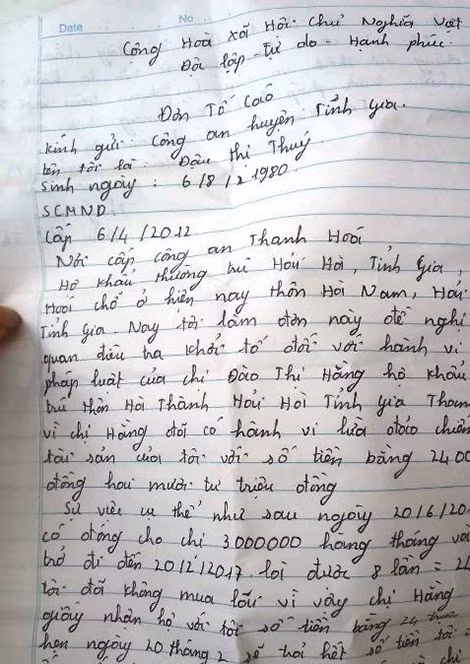 Date No
Công Hoà xã Hội Chủ Nghĩa Việt
Độc lập - Tự do - Hạnh phúc
Đơn Tố Cáo
Kính gửi: Công an huyện Tĩnh Gia.
tên tôi là: Đậu Thị Thuý
Sinh ngày: 6/8/1980.
SCMND
Cấp 6/4/2012
Nơi cấp công an Thanh Hoá
Hộ khẩu thường trú Hải Hà, Tĩnh Gia,
Hoá chỗ ở hiện nay thôn Hà Nam, Hải
Tĩnh Gia. Nay tôi làm đơn này đề nghị
quan điều tra khởi tố đối với hành vi
pháp luật của chị Đào Thị Hằng hộ khẩu
trú thôn Hà Thành Hải Hà Tĩnh Gia Than
vì chị Hằng đã có hành vi lừa đảo chiếm
tài sản của tôi với số tiền bằng 2400
đồng hai mươi tư triệu đồng
Sự việc cụ thể như sau ngày 20/6/20
có đóng cho chị 3000000 hàng tháng và
trở đi đến 20/12/2017. là được 8 lần = 24
tôi đã không mua lãi vì vậy chị Hằng
giấy nhận nợ với tôi số tiền bằng 24 triệu
hẹn ngày 20 tháng 2 sẽ trả hết số tiền tôi
chị